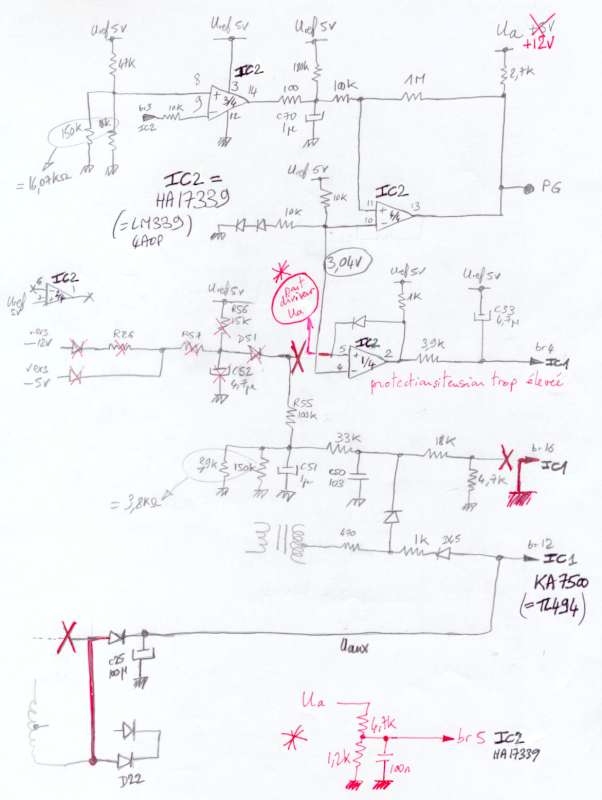 Uref 5V
Uref 5V
Uref 5V
Ua +5V
+12V
47K
IC2
100K
2,7K
8
3
14
br3
IC2
10K
9
3/4
12
100
100K
1M
150K
18K
C70
1µ
= 16,07KΩ
IC2 =
HA17339
(=LM339)
4AOP
Uref 5V
10K
10K
IC2
11
10
4/4
13
PG
3,04V
6
IC2
1
Uref
5V
Uref 5V
R56
15K
pont
diviseur
Ua
Uref 5V
1K
Uref 5V
C33
4,7µ
vers
-12V
R26
R57
D51
C52
4,7µ
vers
-5V
5
4
IC2
1/4
2
39K
br4
IC1
protection si tension trop élevée
R55
100K
33K
18K
br16
IC1
3,9K
150K
C51
1µ
C50
103
4,7K
= 3,8KΩ
470
1K
D45
br12
IC1
KA7500
(=TL494)
C25
100µ
Uaux
D22
Ua
4,7K
1,2K
100n
br5
IC2
HA17339